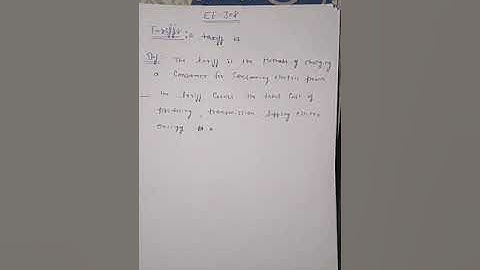 EE 308
Tariffs :- A tariff is
Def. The tariff is the Methods of charging
a Consumer for Consuming electric power
— The tariff Covers the total Cost of
producing, transmission supplying electric
energy